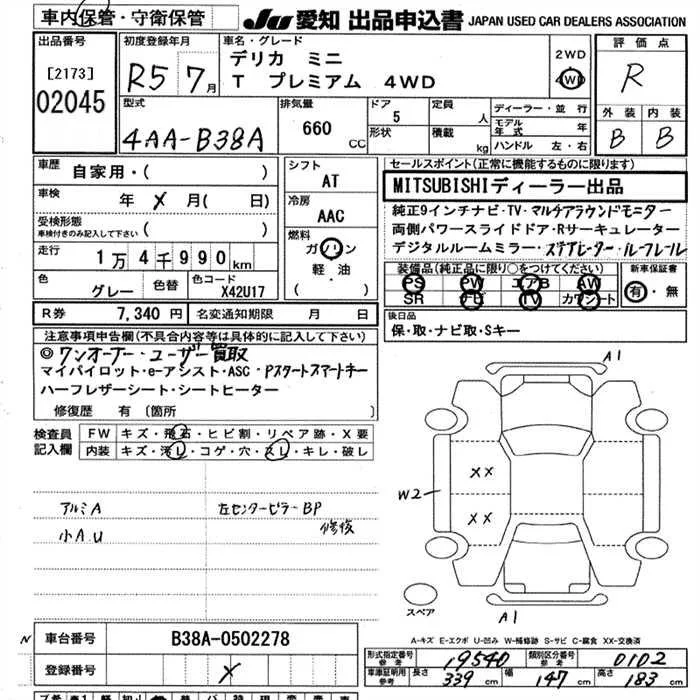 車内保管・守衛保管
JU 愛知 出品申込書 JAPAN USED CAR DEALERS ASSOCIATION
出品番号
[2173]
02045
初度登録年月
R5 7月
車名・グレード
デリカ ミニ
T プレミアム 4WD
2WD
4WD
評価点
R
外装 内装
B B
型式
4AA-B38A
排気量
660 CC
ドア 5
形状
定員 人
積載 kg
ディーラー・並行
モデル年式 年
ハンドル 左・右
車歴 自家用・( )
車検 年 メ 月( 日)
受検形態
車検付きのみ記入して下さい ( )
走行 1万4千990km
色 グレー 色替 色コード X42U17
シフト
AT
冷房
AAC
燃料
ガソリン
軽・油
( )
R券 7,340円 名変通知期限 月 日
セールスポイント(正常に機能するものに限ります)
MITSUBISHIディーラー出品
純正9インチナビ・TV・マルチアラウンドモニター
両側パワースライドドア・Rサーキュレーター
デジタルルームミラー・ステアヒーター・ルーフレール
装備品(純正品に限り○をつけてください)
PS PW エアB AW
SR ナビ TV カワシート
新車保証書
有・無
後日品
保・取・ナビ取・Sキー
注意事項申告欄(不具合内容等は具体的に記入して下さい)
◎ワンオーナー・ユーザー買取
マイパイロット・e-アシスト・ASC・Pスタートスマートキー
ハーフレザーシート・シートヒーター
修復歴 有 〔箇所 〕
検査員記入欄
FW キズ・飛石・ヒビ割・リペア跡・X要
内装 キズ・汚レ・コゲ・穴・スレ・キレ・破レ
アルミA
小A.U
左センターピラーBP
修復
A1
W2
××
××
A1
スペア
A-キズ E-エクボ U-凹み W-補修跡 S-サビ C-腐食 XX-交換済
N
車台番号 B38A-0502278
登録番号 メ
形式指定番号 参考 19540 類別区分番号 参考 0102
車庫証明用 参考 長さ 339 cm 幅 147 cm 高さ 183 cm